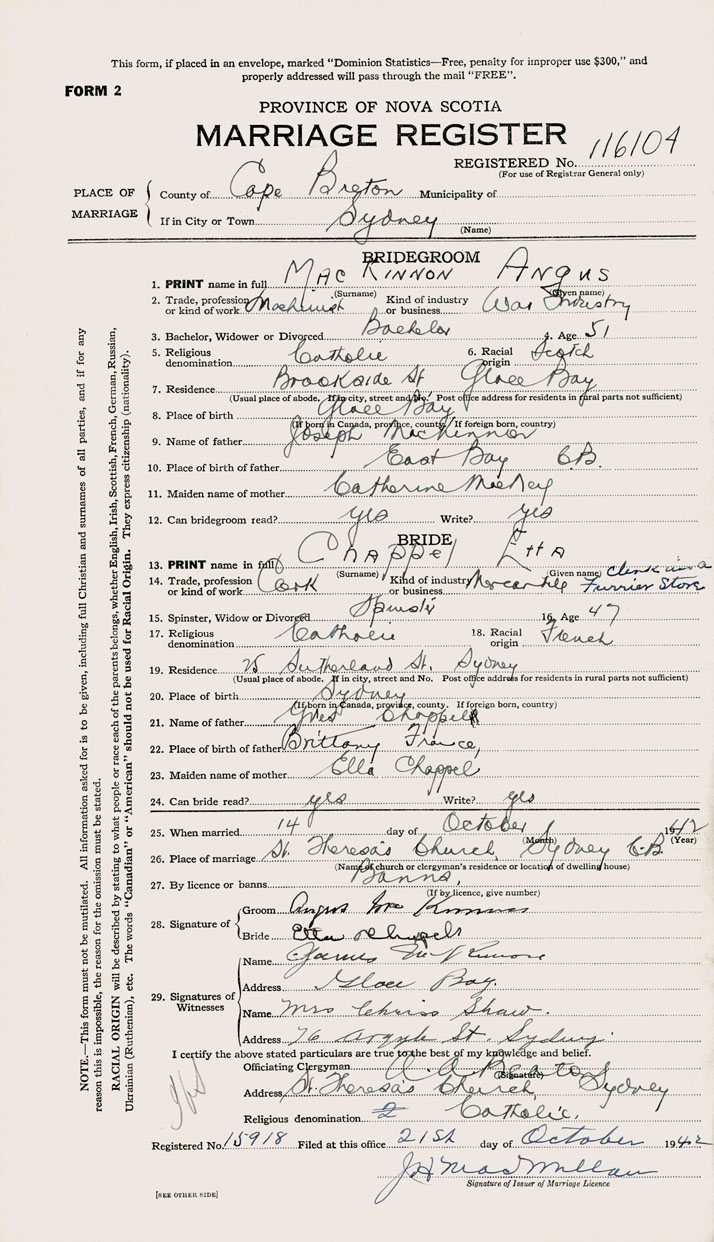 This form, if placed in an envelope, marked "Dominion Statistics—Free, penalty for improper use $300," and
properly addressed will pass through the mail "FREE".
FORM 2
PROVINCE OF NOVA SCOTIA
MARRIAGE REGISTER
REGISTERED No. 116104
(For use of Registrar General only)
PLACE OF MARRIAGE
County of Cape Breton Municipality of
If in City or Town Sydney
(Name)
BRIDEGROOM
1. PRINT name in full Mac Kinnon Angus
(Surname) (Given name)
2. Trade, profession or kind of work Machinist Kind of industry or business War Industry
3. Bachelor, Widower or Divorced Bachelor 4. Age 51
5. Religious denomination Catholic 6. Racial origin Scotch
7. Residence Brookside St. Glace Bay
(Usual place of abode. If in city, street and No. Post office address for residents in rural parts not sufficient)
8. Place of birth Glace Bay
(If born in Canada, province, county. If foreign born, country)
9. Name of father Joseph MacKinnon
10. Place of birth of father East Bay C.B.
11. Maiden name of mother Catherine MacKey
12. Can bridegroom read? yes Write? yes
BRIDE
13. PRINT name in full Chappel Etta
(Surname) (Given name)
14. Trade, profession or kind of work Clerk Kind of industry or business Mercantile clerk in a Furrier Store
15. Spinster, Widow or Divorced Spinster 16. Age 47
17. Religious denomination Catholic 18. Racial origin French
19. Residence 25 Sutherland St. Sydney
(Usual place of abode. If in city, street and No. Post office address for residents in rural parts not sufficient)
20. Place of birth Sydney
(If born in Canada, province, county. If foreign born, country)
21. Name of father Yves Chappell
22. Place of birth of father Brittany France,
23. Maiden name of mother Ella Chappel
24. Can bride read? yes Write? yes
25. When married 14 day of October 1942
(Month) (Year)
26. Place of marriage St. Theresa's Church, Sydney C.B.
(Name of church or clergyman's residence or location of dwelling house)
27. By licence or banns Banns,
(If by licence, give number)
28. Signature of
Groom Angus Mac Kinnon
Bride Etta Chappel
29. Signatures of Witnesses
Name James McKinnon
Address Glace Bay.
Name Mrs Chriss Shaw.
Address 76 Argyle St. Sydney.
I certify the above stated particulars are true to the best of my knowledge and belief.
Officiating Clergyman A. A. Beaton
(Signature)
Address St. Theresa's Church, Sydney
Religious denomination Catholic.
Registered No. 15918 Filed at this office 21st day of October 1942
J H MacMillan
Signature of Issuer of Marriage Licence
[SEE OTHER SIDE]
NOTE.—This form must not be mutilated. All information asked for is to be given, including full Christian and surnames of all parties, and if for any
reason this is impossible, the reason for the omission must be stated.
RACIAL ORIGIN will be described by stating to what people or race each of the parents belongs, whether English, Irish, Scottish, French, German, Russian,
Ukrainian (Ruthenian), etc. The words "Canadian" or "American" should not be used for Racial Origin. They express citizenship (nationality).